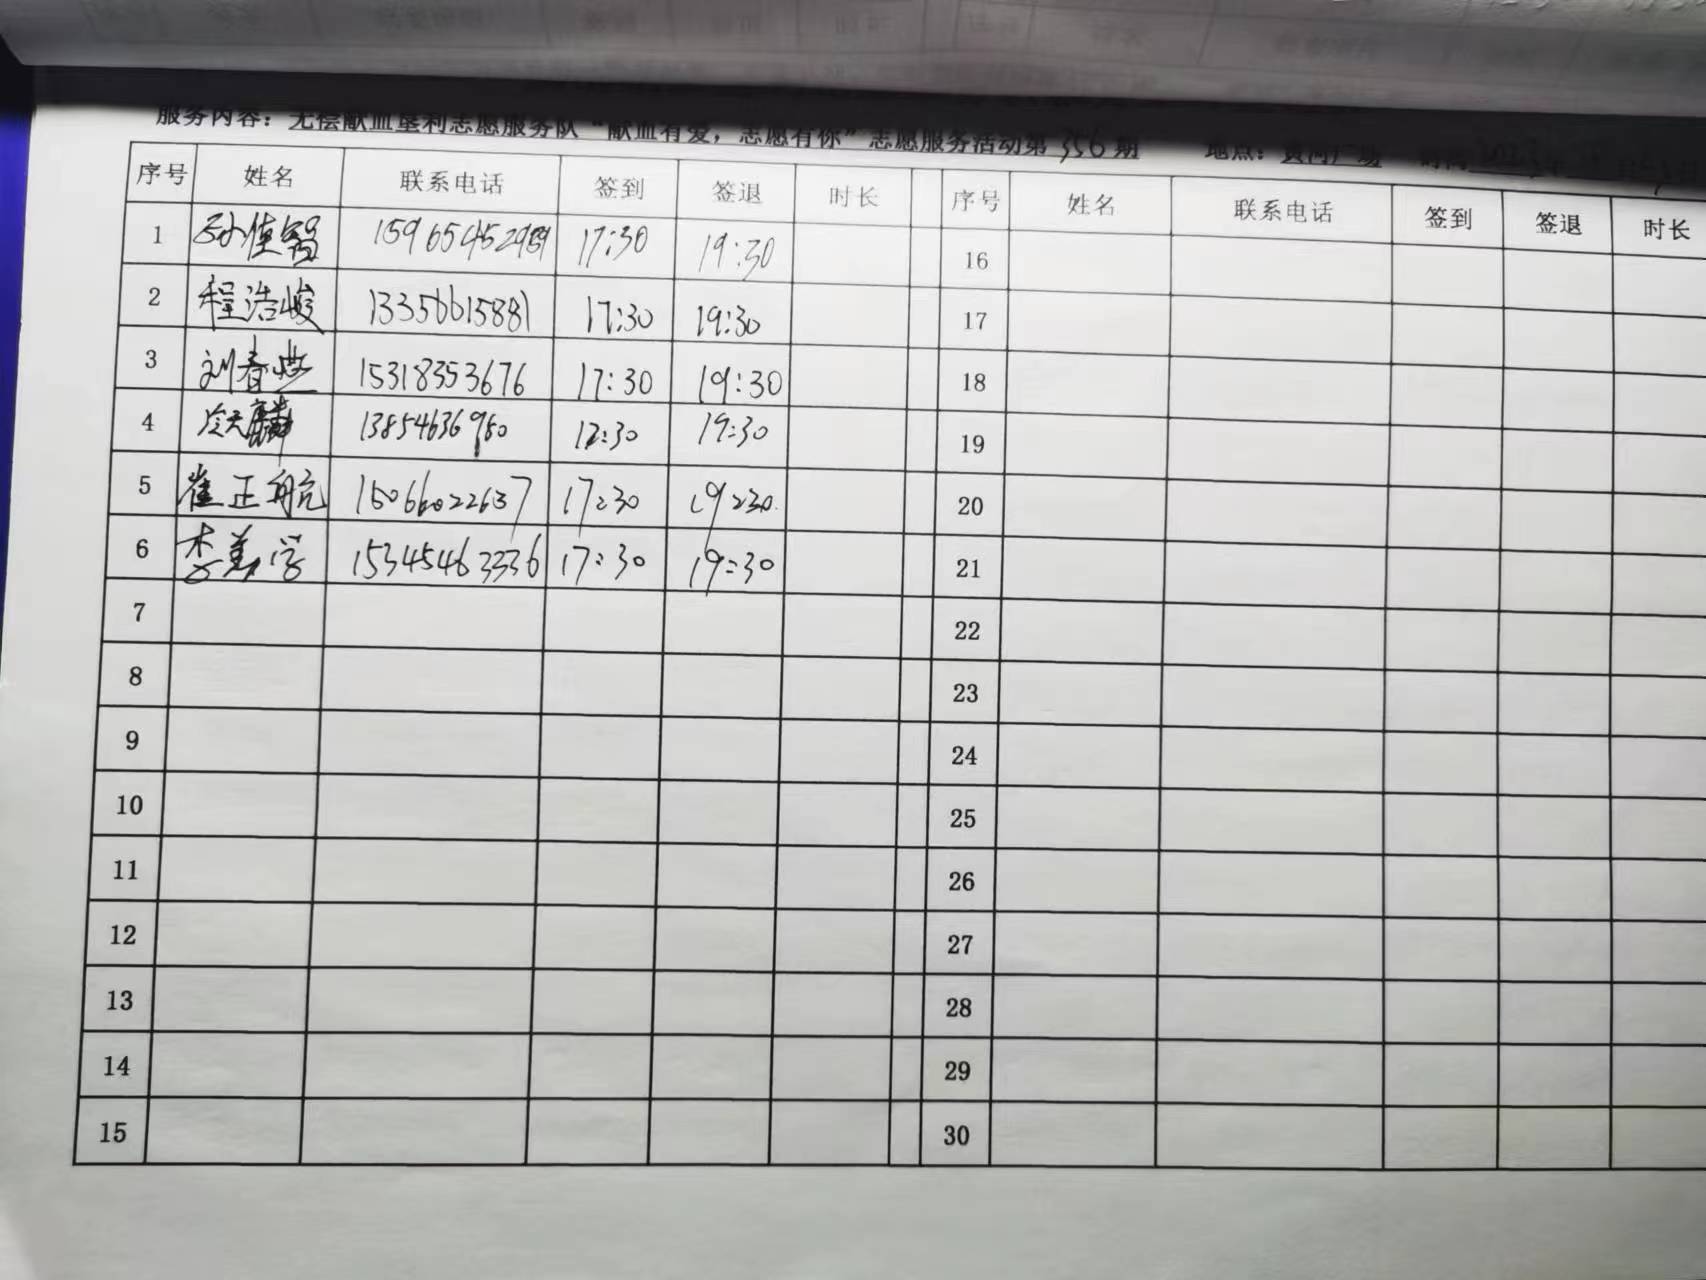 服务内容：无偿献血垦利志愿服务队“献血有爱，志愿有你”志愿服务活动第356期 地点：黄河广场 时间
序号 姓名 联系电话 签到 签退 时长 序号 姓名 联系电话 签到 签退 时长
1 17:30 19:30 16
2 程浩峻 13356615881 17:30 19:30 17
3 刘春 15318353676 17:30 19:30 18
4 冷天麟 13854636980 12:30 19:30 19
5 崔正航 15066022637 17:30 19:30 20
6 李美学 15345463336 17:30 19:30 21
7 22
8 23
9 24
10 25
11 26
12 27
13 28
14 29
15 30